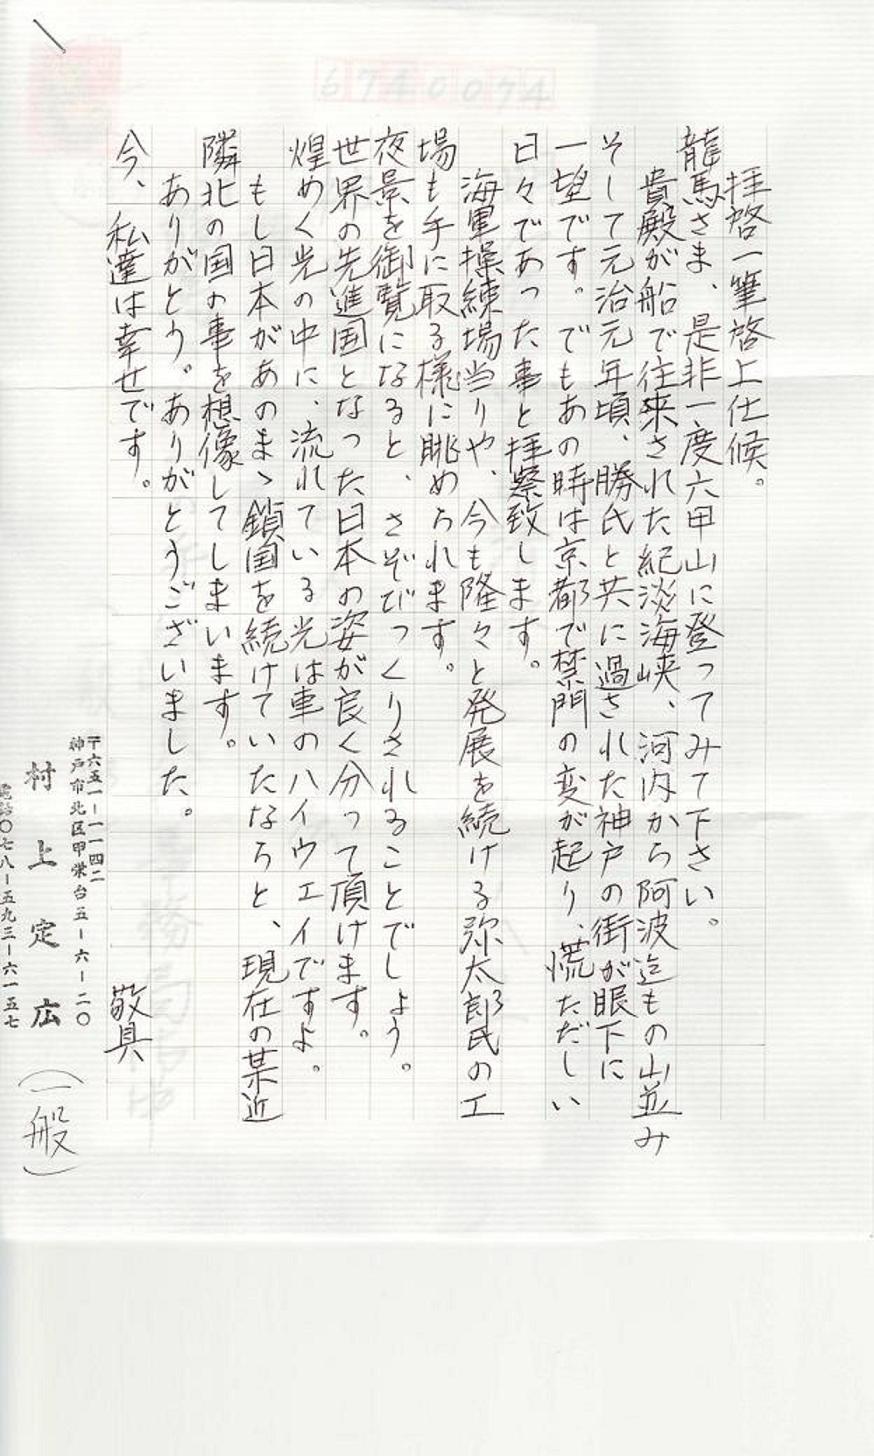 拝啓一筆啓上仕候。
龍馬さま、是非一度六甲山に登ってみて下さい。
貴殿が船で往来された紀淡海峡、河内から阿波迄もの山並み
そして元治元年頃、勝氏と共に過された神戸の街が眼下に
一望です。でもあの時は京都で禁門の変が起り、慌ただしい
日々であった事と拝察致します。
海軍操練場当りや、今も隆々と発展を続ける弥太郎氏の工
場も手に取る様に眺められます。
夜景を御覧になると、さぞびっくりされることでしょう。
世界の先進国となった日本の姿が良く分って頂けます。
煌めく光の中に、流れている光は車のハイウエイですよ。
もし日本があのまゝ鎖国を続けていたならと、現在の某近
隣北の国の事を想像してしまいます。
ありがとう。ありがとうございました。
今、私達は幸せです。
敬具
〒六五一-一一四二
神戸市北区甲栄台五-六-二〇
村上定広(一般)
電話〇七八-五九三-六一五七
6740074